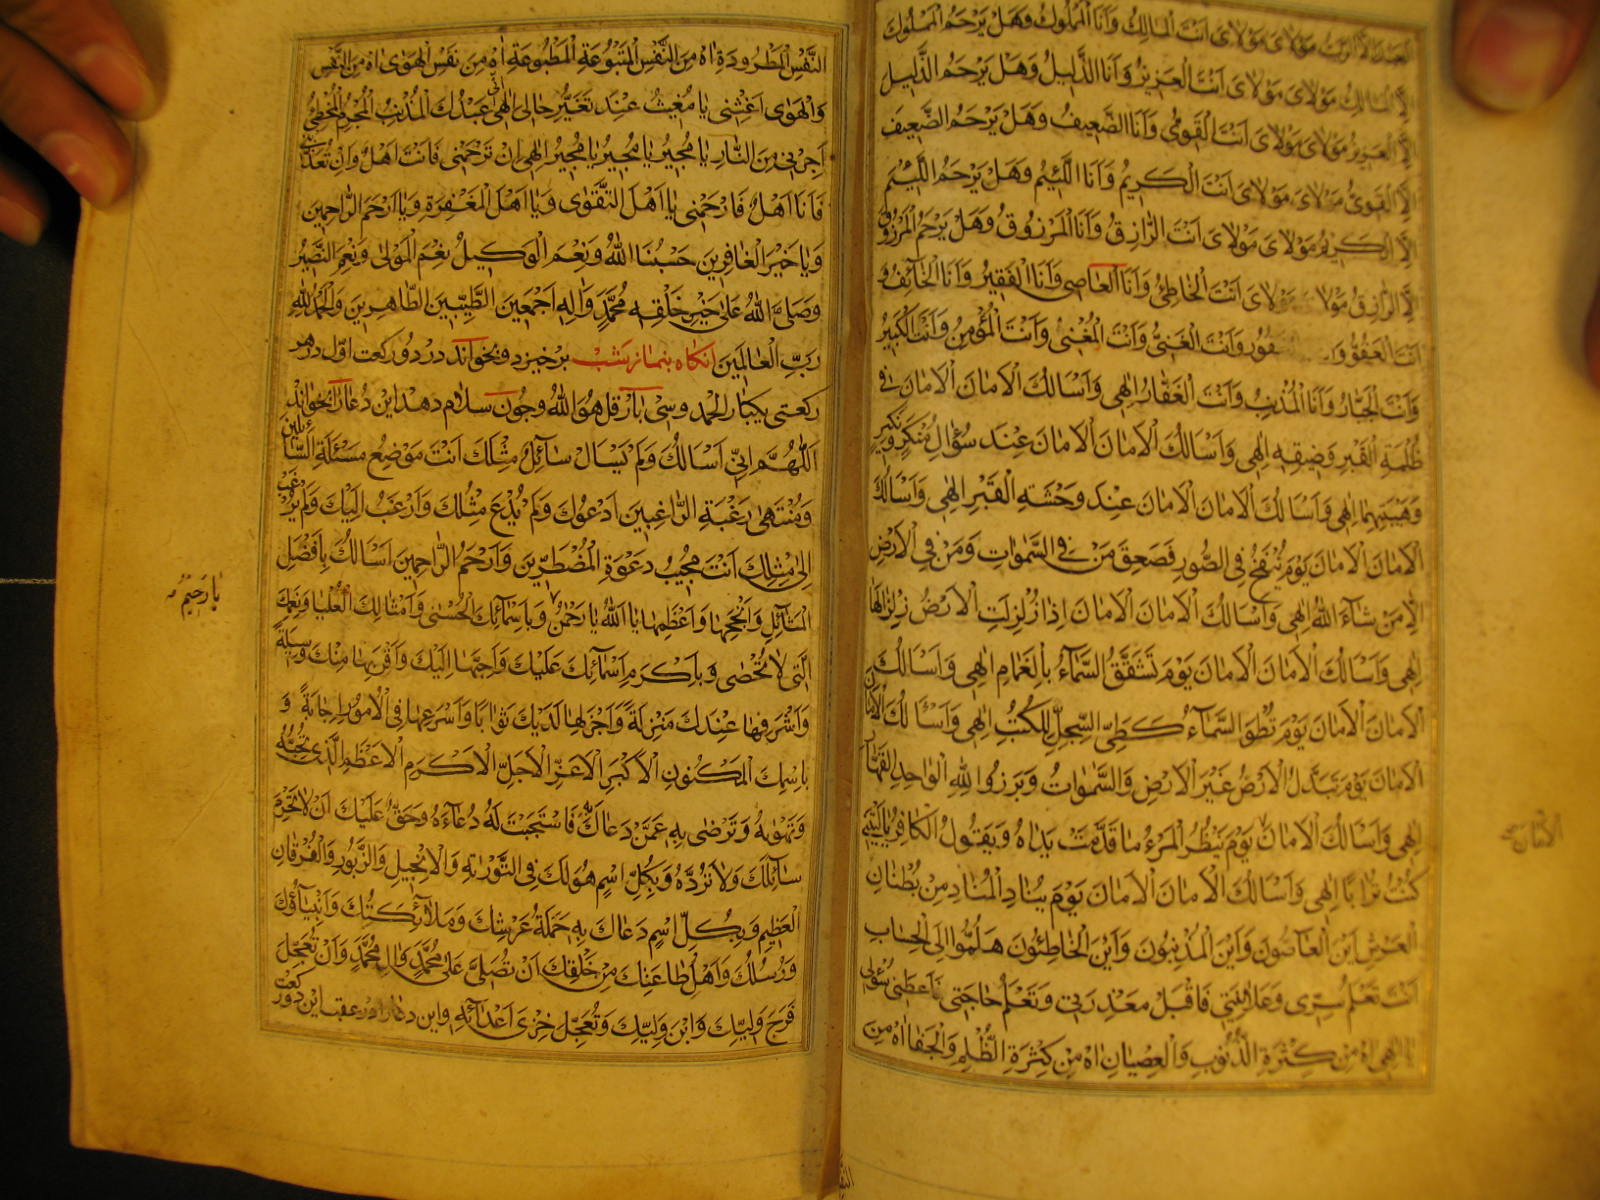 العبد الا الرب مولای مولای انت المالك وانا المملوك وهل يرحم المملوك
الا المالك مولای مولای انت العزيز وانا الذليل وهل يرحم الذليل
الا العزيز مولای مولای انت القوی وانا الضعيف وهل يرحم الضعيف
الا القوی مولای مولای انت الكريم وانا اللئيم وهل يرحم اللئيم
الا الكريم مولای مولای انت الرازق وانا المرزوق وهل يرحم المرزوق
الا الرازق مولای انت الخاطئ وانا العاصی وانا الفقير وانا الخائف و
انت العفو وانت الغنی وانت المغنی وانت المؤمن وانت الكبير
وانت الجبار وانا المذنب وانت الغفار الهی واسالك الامان الامان فی
ظلمة القبر وضيقه الهی واسالك الامان الامان عند سؤال منكر ونكير
وهيبتهما الهی واسالك الامان الامان عند وحشته القبر الهی واسالك
الامان الامان يوم ينفخ فی الصور فصعق من فی السموات ومن فی الارض
الا من شاء الله الهی واسالك الامان الامان اذا زلزلت الارض زلزالها
الهی واسالك الامان الامان يوم تشقق السماء بالغمام الهی واسالك
الامان الامان يوم نطوا السماء كطی السجل للكتب الهی واسالك الامان
الامان يوم تبدل الارض غير الارض والسموات وبرزوا لله الواحد القهار
الهی واسالك الامان يوم ينظر المرء ما قدمت يداه ويقول الكافر ياليتنی
كنت ترابا الهی واسالك الامان الامان يوم يناد المناد من بطنان
العرش اين العاصون واين المذنبون واين الخاطئون هلموا الی الحساب
انت تعلم سری وعلانيتی فاقبل معذرتی وتعلم حاجتی فاعطنی سؤلی
يا الهی اه من كثرة الذنوب والعصيان اه من كثرة الظلم والجفا اه من
الامان
النفس المطرودة اه من النفس المتبوعة المطبوعة اه من نفس الهوی اه من النفس
والهوی اغثنی يا مغيث عند تغير حالی الهی انی عبدك المذنب المجرم المخطی
اجرنی من النار يا مجير يا مجير يا مجير الهی ان ترحمنی فانت اهل وان تعذبنی
فانا اهل فارحمنی يا اهل التقوی ويا اهل المغفرة ويا ارحم الراحمين
ويا خير الغافرين حسبنا الله ونعم الوكيل نعم المولی ونعم النصير
وصلی الله علی خير خلقه محمد واله اجمعين الطيبين الطاهرين والحمد لله
رب العالمين انكاه بنماز شب برخيزد وبخواند در دو ركعت اول در هر
ركعتی يكبار الحمد وسی بار قل هو الله وچون سلام دهد اين دعا را بخواند
اللهم انی اسالك ولم يسال سائل مثلك انت موضع مسئلة السائلين
ومنتهی رغبة الراغبين ادعوك ولم يدع مثلك وارغب اليك ولم يرغب
الی مثلك انت مجيب دعوة المضطرين وارحم الراحمين اسالك بافضل
المسائل وانجحها واعظمها يا الله يا رحمن وباسمائك الحسنی وامثالك العليا ونعمك
التی لا تحصی وباكرم اسمائك عليك واحبها اليك واقربها منك وسيلة
واشرفها عندك منزلة واجزلها لديك ثوابا واسرعها فی الامور اجابة و
باسمك المكنون الاكبر الاعز الاجل الاكرم الاعظم الذی تحبه
وتهواه وترضی به عمن دعاك به فاستجبت له دعاءه وحق عليك ان لا تحرم
سائلك ولا ترده وبكل اسم هو لك فی التورية والانجيل والزبور والفرقان
العظيم وبكل اسم دعاك به حملة عرشك وملائكتك وانبياؤك
ورسلك واهل طاعتك من خلقك ان تصلی علی محمد وال محمد وان تعجل
فرج وليك وابن وليك وتعجل خزی اعدائه واين دعا را در عقب اين دو ركعت
يا رحيم